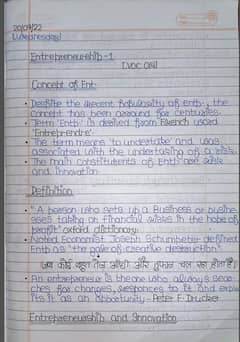 20/07/22
Wednesday
Entrepreneurship-1
(VOC 064)
Concept of Ent.
• Despite the recent popularity of entb., the
concept has been around for centuries.
• Term 'Entb' is derived from French word
'Entreprendre'.
• The term means 'to undertake' and was
associated with the undertaking of a risk.
• The main constituents of Entb are risk
and innovation.
Definition
• "A person who sets up a Business or busine-
sses taking on financial risks in the hope of
profit" oxford dictionary.
• Noted Economist Joseph Schumpeter defined
Entb as "the gale of creative destruction".
जब कोई बहुत तेज आंधी और तूफान चल रहा होता है।
• An entrepreneur is the one who always sear-
ches for changes, responses to it and explo-
its it as an opportunity - Peter F Drucker
Entrepreneurship and Innovation